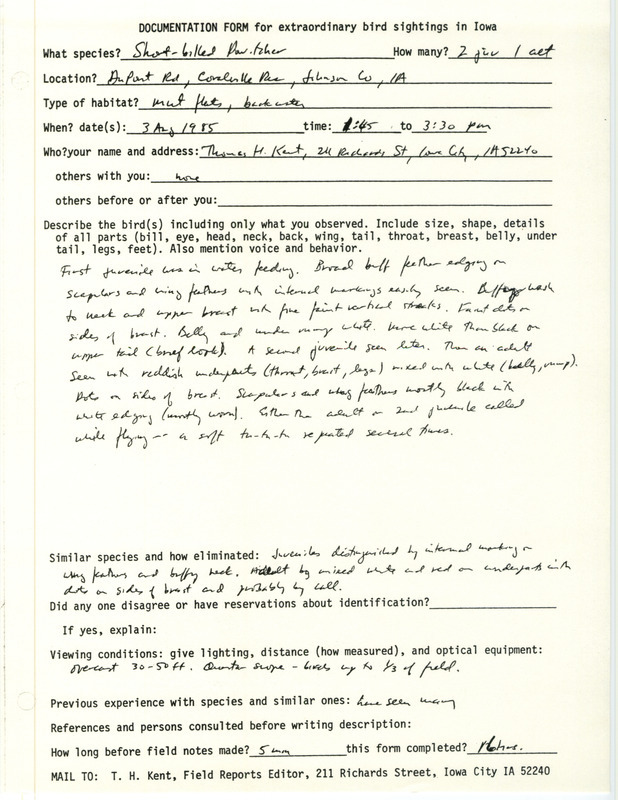 DOCUMENTATION FORM for extraordinary bird sightings in Iowa
What species? Short-billed Dowitcher How many? 2 juv 1 alt
Location? DuPont Rd, Coralville Res, Johnson Co, IA
Type of habitat? mud flats, backwater
When? date(s): 3 Aug 1985 time: 1:45 to 3:30 pm
Who?your name and address: Thomas H. Kent, 211 Richards St, Iowa City, IA 52240
others with you: none
others before or after you:
Describe the bird(s) including only what you observed. Include size, shape, details
of all parts (bill, eye, head, neck, back, wing, tail, throat, breast, belly, under
tail, legs, feet). Also mention voice and behavior.
First juvenile was in water feeding. Broad buff feather edging on
scapulars and wing feathers with internal markings easily seen. Buffy wash
to neck and upper breast with fine faint vertical streaks. Faint dots on
sides of breast. Belly and under rump white. More white than black on
upper tail (brief look). A second juvenile seen later. Then an adult
seen with reddish underparts (throat, breast, legs) mixed with white (belly, rump).
Dots on sides of breast. Scapulars and wing feathers mostly black with
white edging (mostly worn). Either the adult or 2nd juvenile called
while flying -- a soft tu-tu-tu repeated several times.
Similar species and how eliminated: Juveniles distinguished by internal marking on
wing feathers and buffy neck. Adult by mixed white and red on underparts with
dots on sides of breast and probably by call.
Did any one disagree or have reservations about identification?
If yes, explain:
Viewing conditions: give lighting, distance (how measured), and optical equipment:
overcast 30-50 ft. Questar scope - birds up to 1/3 of field.
Previous experience with species and similar ones: have seen many
References and persons consulted before writing description:
How long before field notes made? 5 min this form completed? 16 hrs.
MAIL TO: T. H. Kent, Field Reports Editor, 211 Richards Street, Iowa City IA 52240